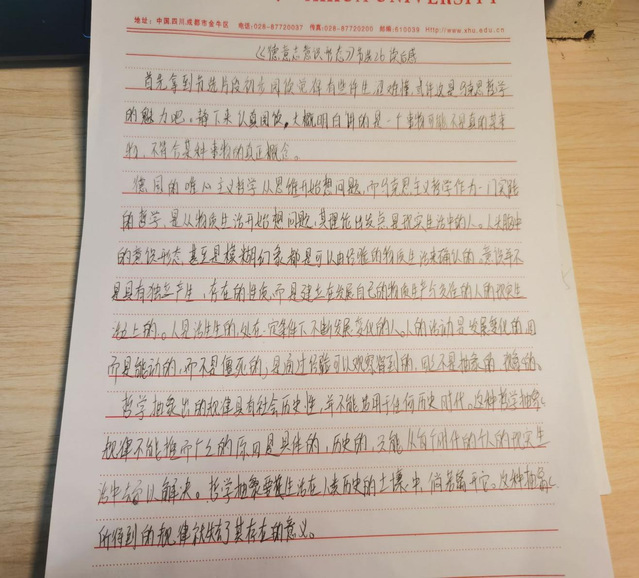 XIHUA UNIVERSITY
地址:中国.四川.成都市金牛区 电话:028-87720037 传真:028-87720200 邮编:610039 Http://www.xhu.edu.cn
《德意志意识形态》节选2b读后感
首先拿到节选片段初步阅读觉得有些许生涩难懂,或许这是马克思哲学
的魅力吧。静下来认真阅读,大概明白讲的是一个事物可能不是真的某事
物,不符合某种事物的真正概念。
德国的唯心主义哲学从思维开始想问题,而马克思主义哲学作为一门实践
的哲学,是从物质生活开始想问题,其理论出发点是现实生活中的人。人头脑中
的意识形态,甚至是模糊幻象都是可以由经验的物质生活来确认的。意识并不
是具有独立产生,存在的性质,而是建立在发展自己的物质生产与交往的人的现实生
活上的。人是活生生的,处在一定条件下不断发展变化的人。人的活动是发展变化的,因
而是能动的,而不是僵死的;是通过经验可以观察得到的,而不是抽象的
哲学抽象出的规律具有社会历史性,并不能适用于任何历史时代。这种哲学抽象
规律不能推而广之的原因是具体的,历史的,只能从每个时代的个人的现实生
活中予以解决。哲学抽象要植生活在人类历史的土壤中,倘若离开它。这种抽象
所得到的规律就失去了其存在的意义。